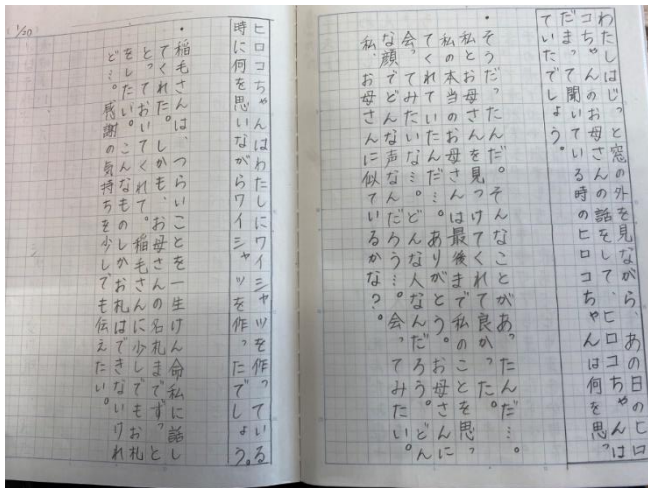 わたしはじっと窓の外を見ながら、あの日のヒロ
コちゃんのお母さんの話をして、ヒロコちゃんは
だまって聞いている時のヒロコちゃんは何を思っ
ていたでしょう。
・そうだったんだ。そんなことがあったんだ…。
私とお母さんを見つけてくれて良かった。
私の本当のお母さんは最後まで私のことを思っ
てくれていたんだ…。ありがとう。お母さんに
会ってみたいな…。どんな人なんだろう。どん
な顔でどんな声なんだろう…。会ってみたい。
私、お母さんに似ているかな?。
ヒロコちゃんはわたしにワイシャツを作っている
時に何を思いながらワイシャツを作ったでしょう。
・稲毛さんは、つらいことを一生けん命私に話し
てくれた。しかも、お母さんの名札までずっと
とっておいてくれて。稲毛さんに少しでもお礼
をしたい。こんなものしかお礼はできないけれ
ど…。感謝の気持ちを少しでも伝えたい。
1/20